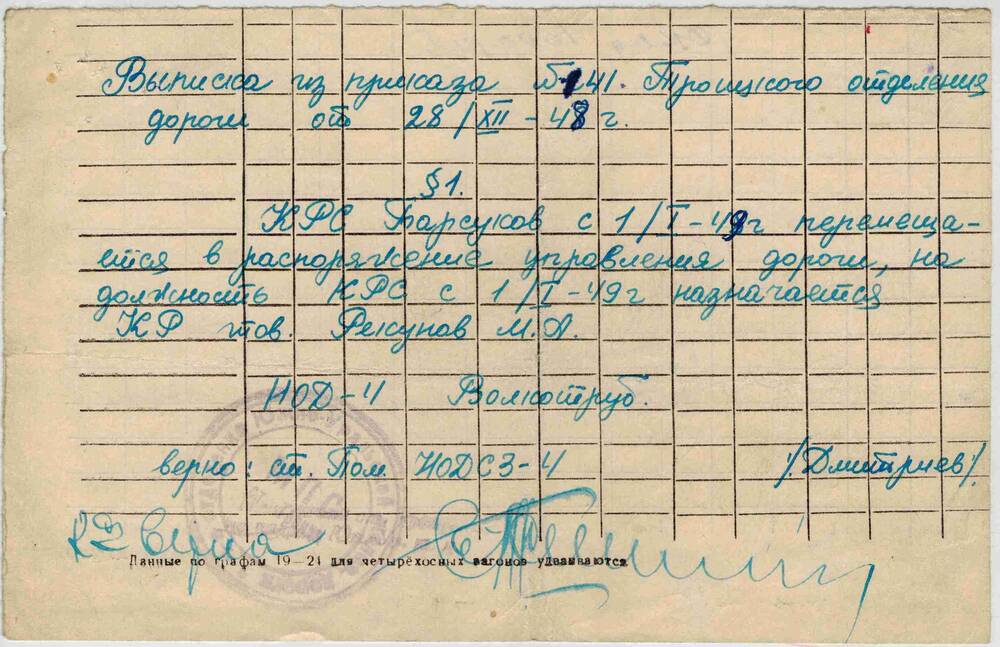 Выписка из приказа №141. Троицкого отделения
дороги от 28/XII-48г.
§1.
КРС Барсуков с 1/I-49г перемеща-
ется в распоряжение управления дороги, на
должность КРС с 1/I-49г назначается
КР тов. Рекунов М.А.
НОД-4 Волкотруб.
верно: ст. Пом. НОДСЗ-4 /Дмитриев/.
верна
Данные по графам 19—21 для четырёхосных вагонов удваиваются